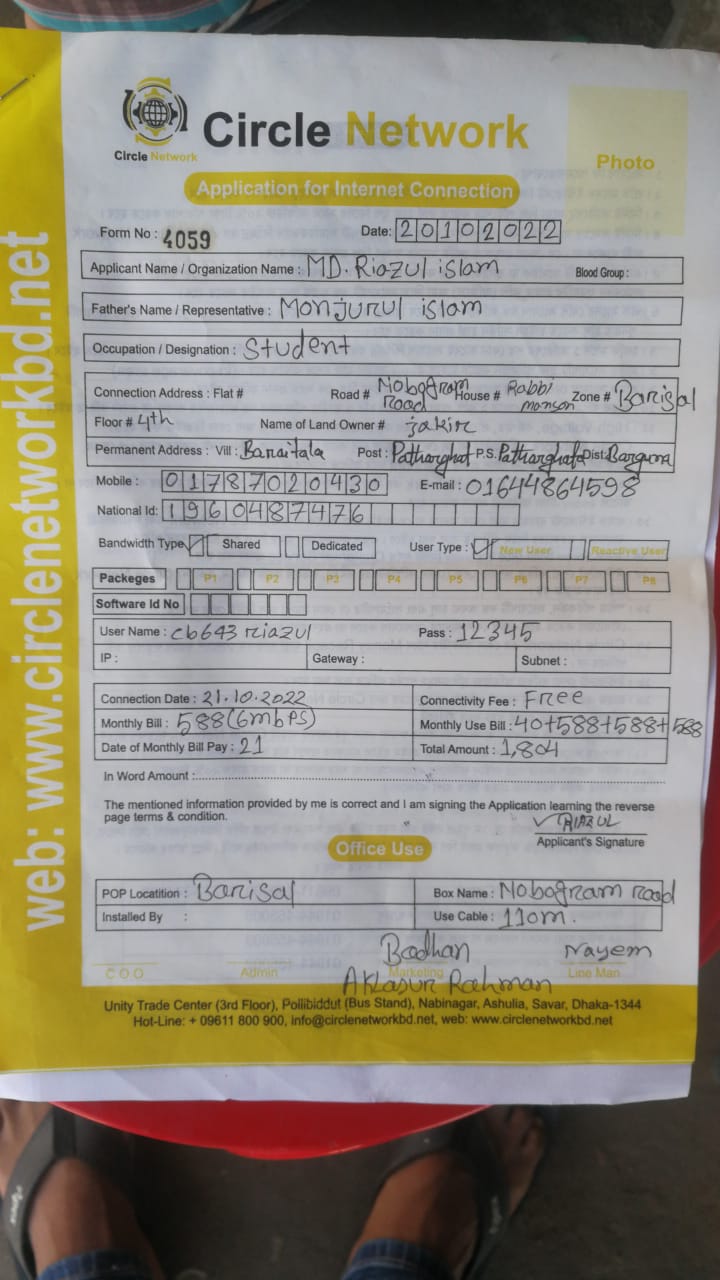 Circle Network
Circle Network
Photo
Application for Internet Connection
web: www.circlenetworkbd.net
Form No : 4059 Date: 20102022
Applicant Name / Organization Name : MD. Riazul islam Blood Group :
Father's Name / Representative : Monjurul islam
Occupation / Designation : Student
Connection Address : Flat # Road # Nobogram road House # Rabbi monson Zone # Barisal
Floor # 4th Name of Land Owner # jakir
Permanent Address : Vill : Post : Patharghat P.S. Patharghata Dist: Barguna
Mobile : 01787020430 E-mail : 01644864598
National Id: 1960487476
Bandwidth Type Shared Dedicated User Type : New User Reactive User
Packeges P1 P2 P3 P4 P5 P6 P7 P8
Software Id No
User Name : cb643 riazul Pass : 12345
IP : Gateway : Subnet :
Connection Date : 21.10.2022 Connectivity Fee : Free
Monthly Bill : 588 (6mbPS) Monthly Use Bill : 40+588+588+588
Date of Monthly Bill Pay : 21 Total Amount : 1,804
In Word Amount :
The mentioned information provided by me is correct and I am signing the Application learning the reverse
page terms & condition.
RIAZUL
Applicant's Signature
Office Use
POP Locatition : Barisal Box Name : Nobogram road
Installed By : Use Cable : 110m.
Bodhan Nayem
C O O Admin Marketing Line Man
Rahman
Unity Trade Center (3rd Floor), Pollibiddut (Bus Stand), Nabinagar, Ashulia, Savar, Dhaka-1344
Hot-Line: + 09611 800 900, info@circlenetworkbd.net, web: www.circlenetworkbd.net